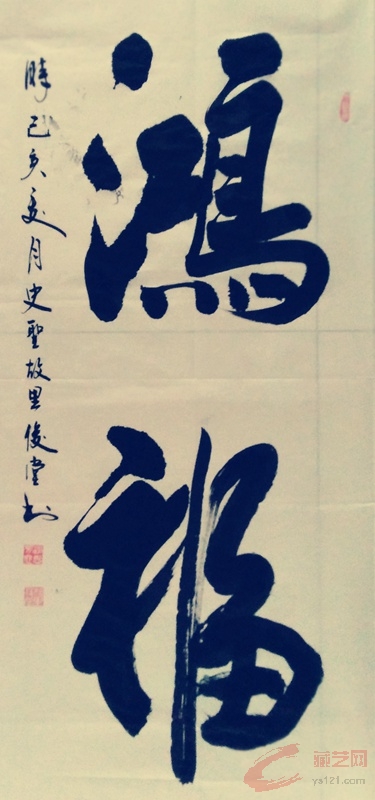 鴻福
時己亥夏月史聖故里俊堂书
藏艺网
ys121.com